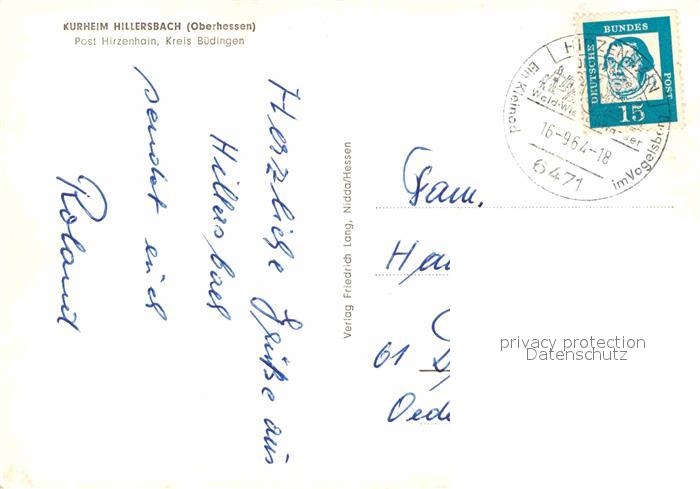 KURHEIM HILLERSBACH (Oberhessen)
Post Hirzenhain, Kreis Büdingen
Herzliche Grüße aus
Hillersbach
sendet euch
Roland
Verlag Friedrich Lang, Nidda/Hessen
DEUTSCHE
BUNDES
POST
15
HIRZENHAIN
Ein Kleinod
im Vogelsberg
16-9.64-18
6471
Fam.
61
Oede
privacy protection
Datenschutz